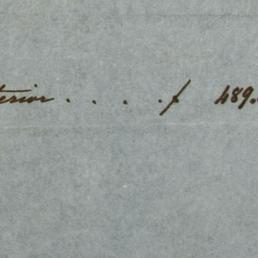 terior . . . . f 489.